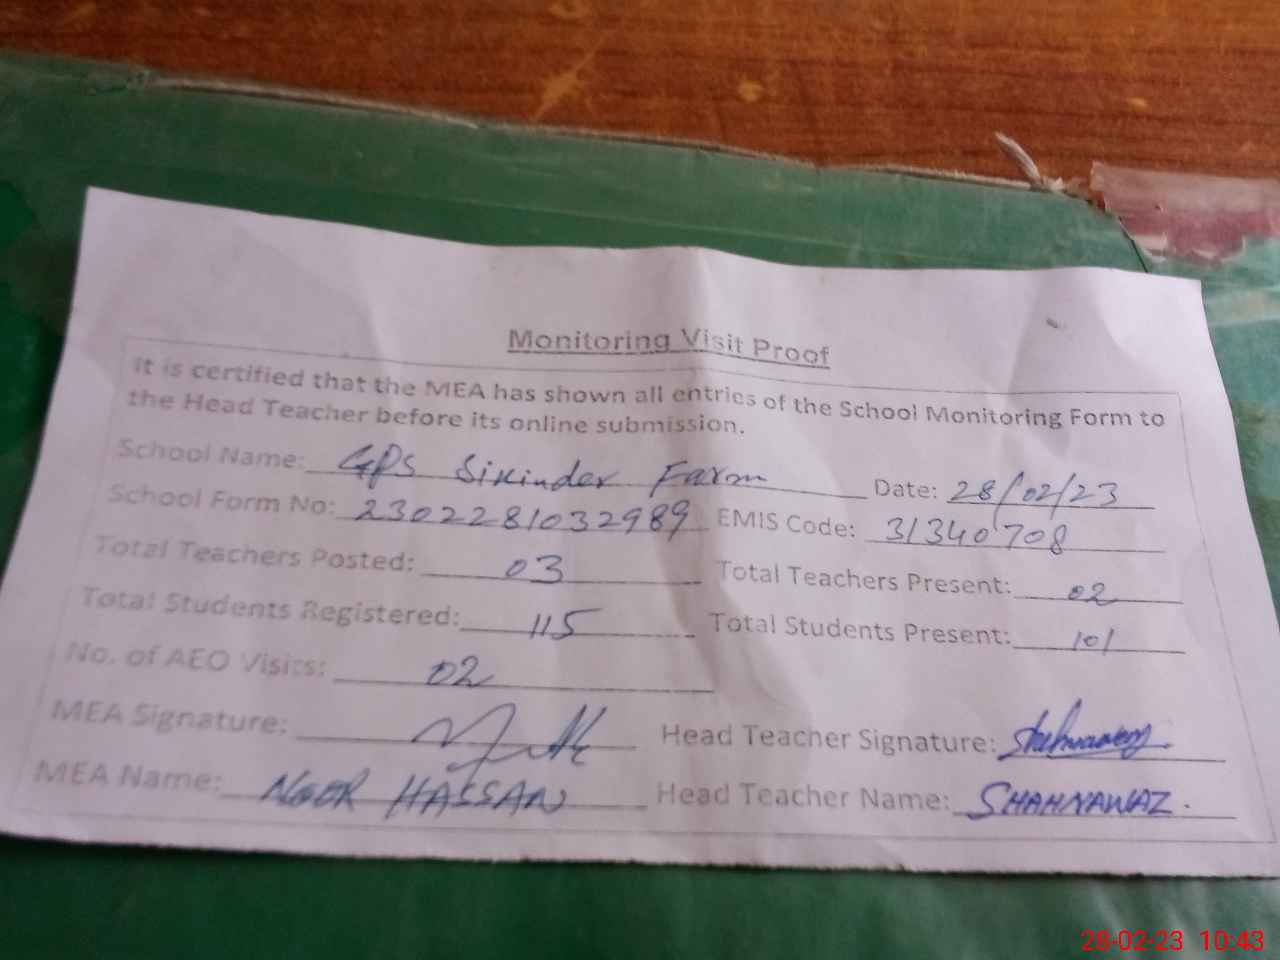 Monitoring Visit Proof
It is certified that the MEA has shown all entries of the School Monitoring Form to
the Head Teacher before its online submission.
School Name: GPS Sikinder Farm Date: 28/02/23
School Form No: 2302281032989 EMIS Code: 31340708
Total Teachers Posted: 03 Total Teachers Present: 02
Total Students Registered: 115 Total Students Present: 101
No. of AEO Visits: 02
MEA Signature: Head Teacher Signature: Shahnawaz
MEA Name: NOOR HASSAN Head Teacher Name: SHAHNAWAZ.
28-02-23 10:43